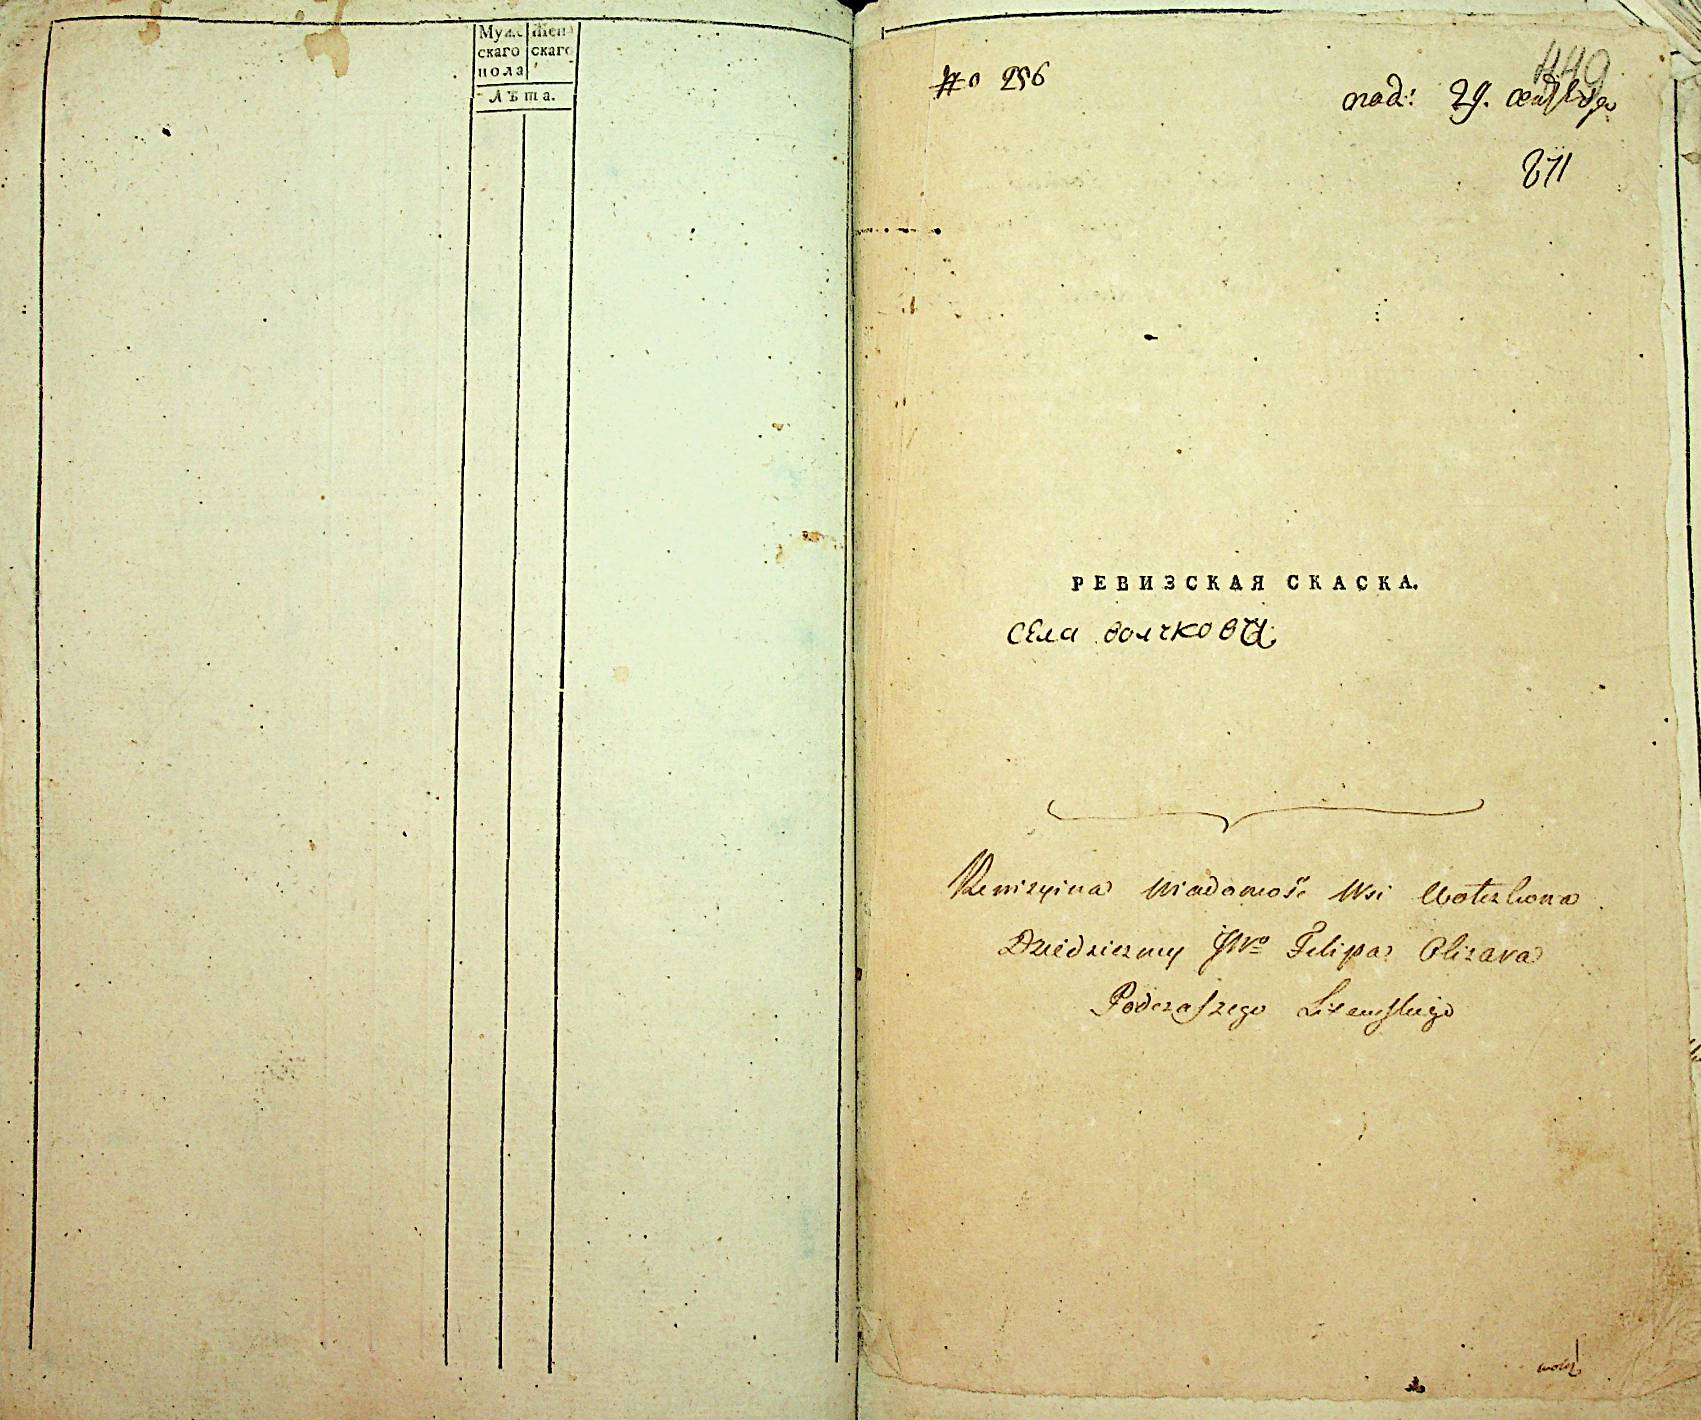 Муже Жен
скаго скаго
пола
Лѣта.
№ 256
449
под: 29. октября
871
РЕВИЗСКАЯ СКАСКА.
села волчковц
Rewizyina Wiadomość Wsi Wołczkowa
Dziedziczney JWo Filipa Olizara
Podczaszego Litewskiego